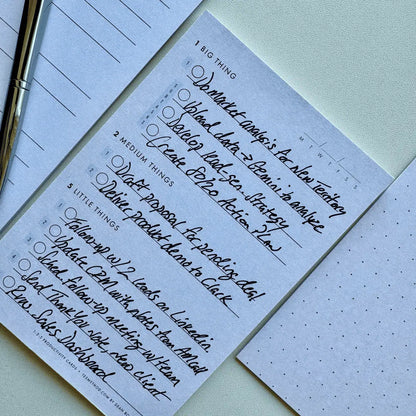 1 BIG THING
M T W T F S
Do market analysis for New Territory
Upload data → Gemini to analyze
Develop lead-gen strategy
Create 80/20 Action Plan
2 MEDIUM THINGS
Draft proposal for pending deal
Deliver product demo to Clark
5 LITTLE THINGS
Follow-up w/ 2 leads on LinkedIn
Update CRM with notes from
Sched. follow-up meeting w/ team
Send Thank You note, new client
Sales Dashboard
1-2-5 PRODUCTIVITY CARDS